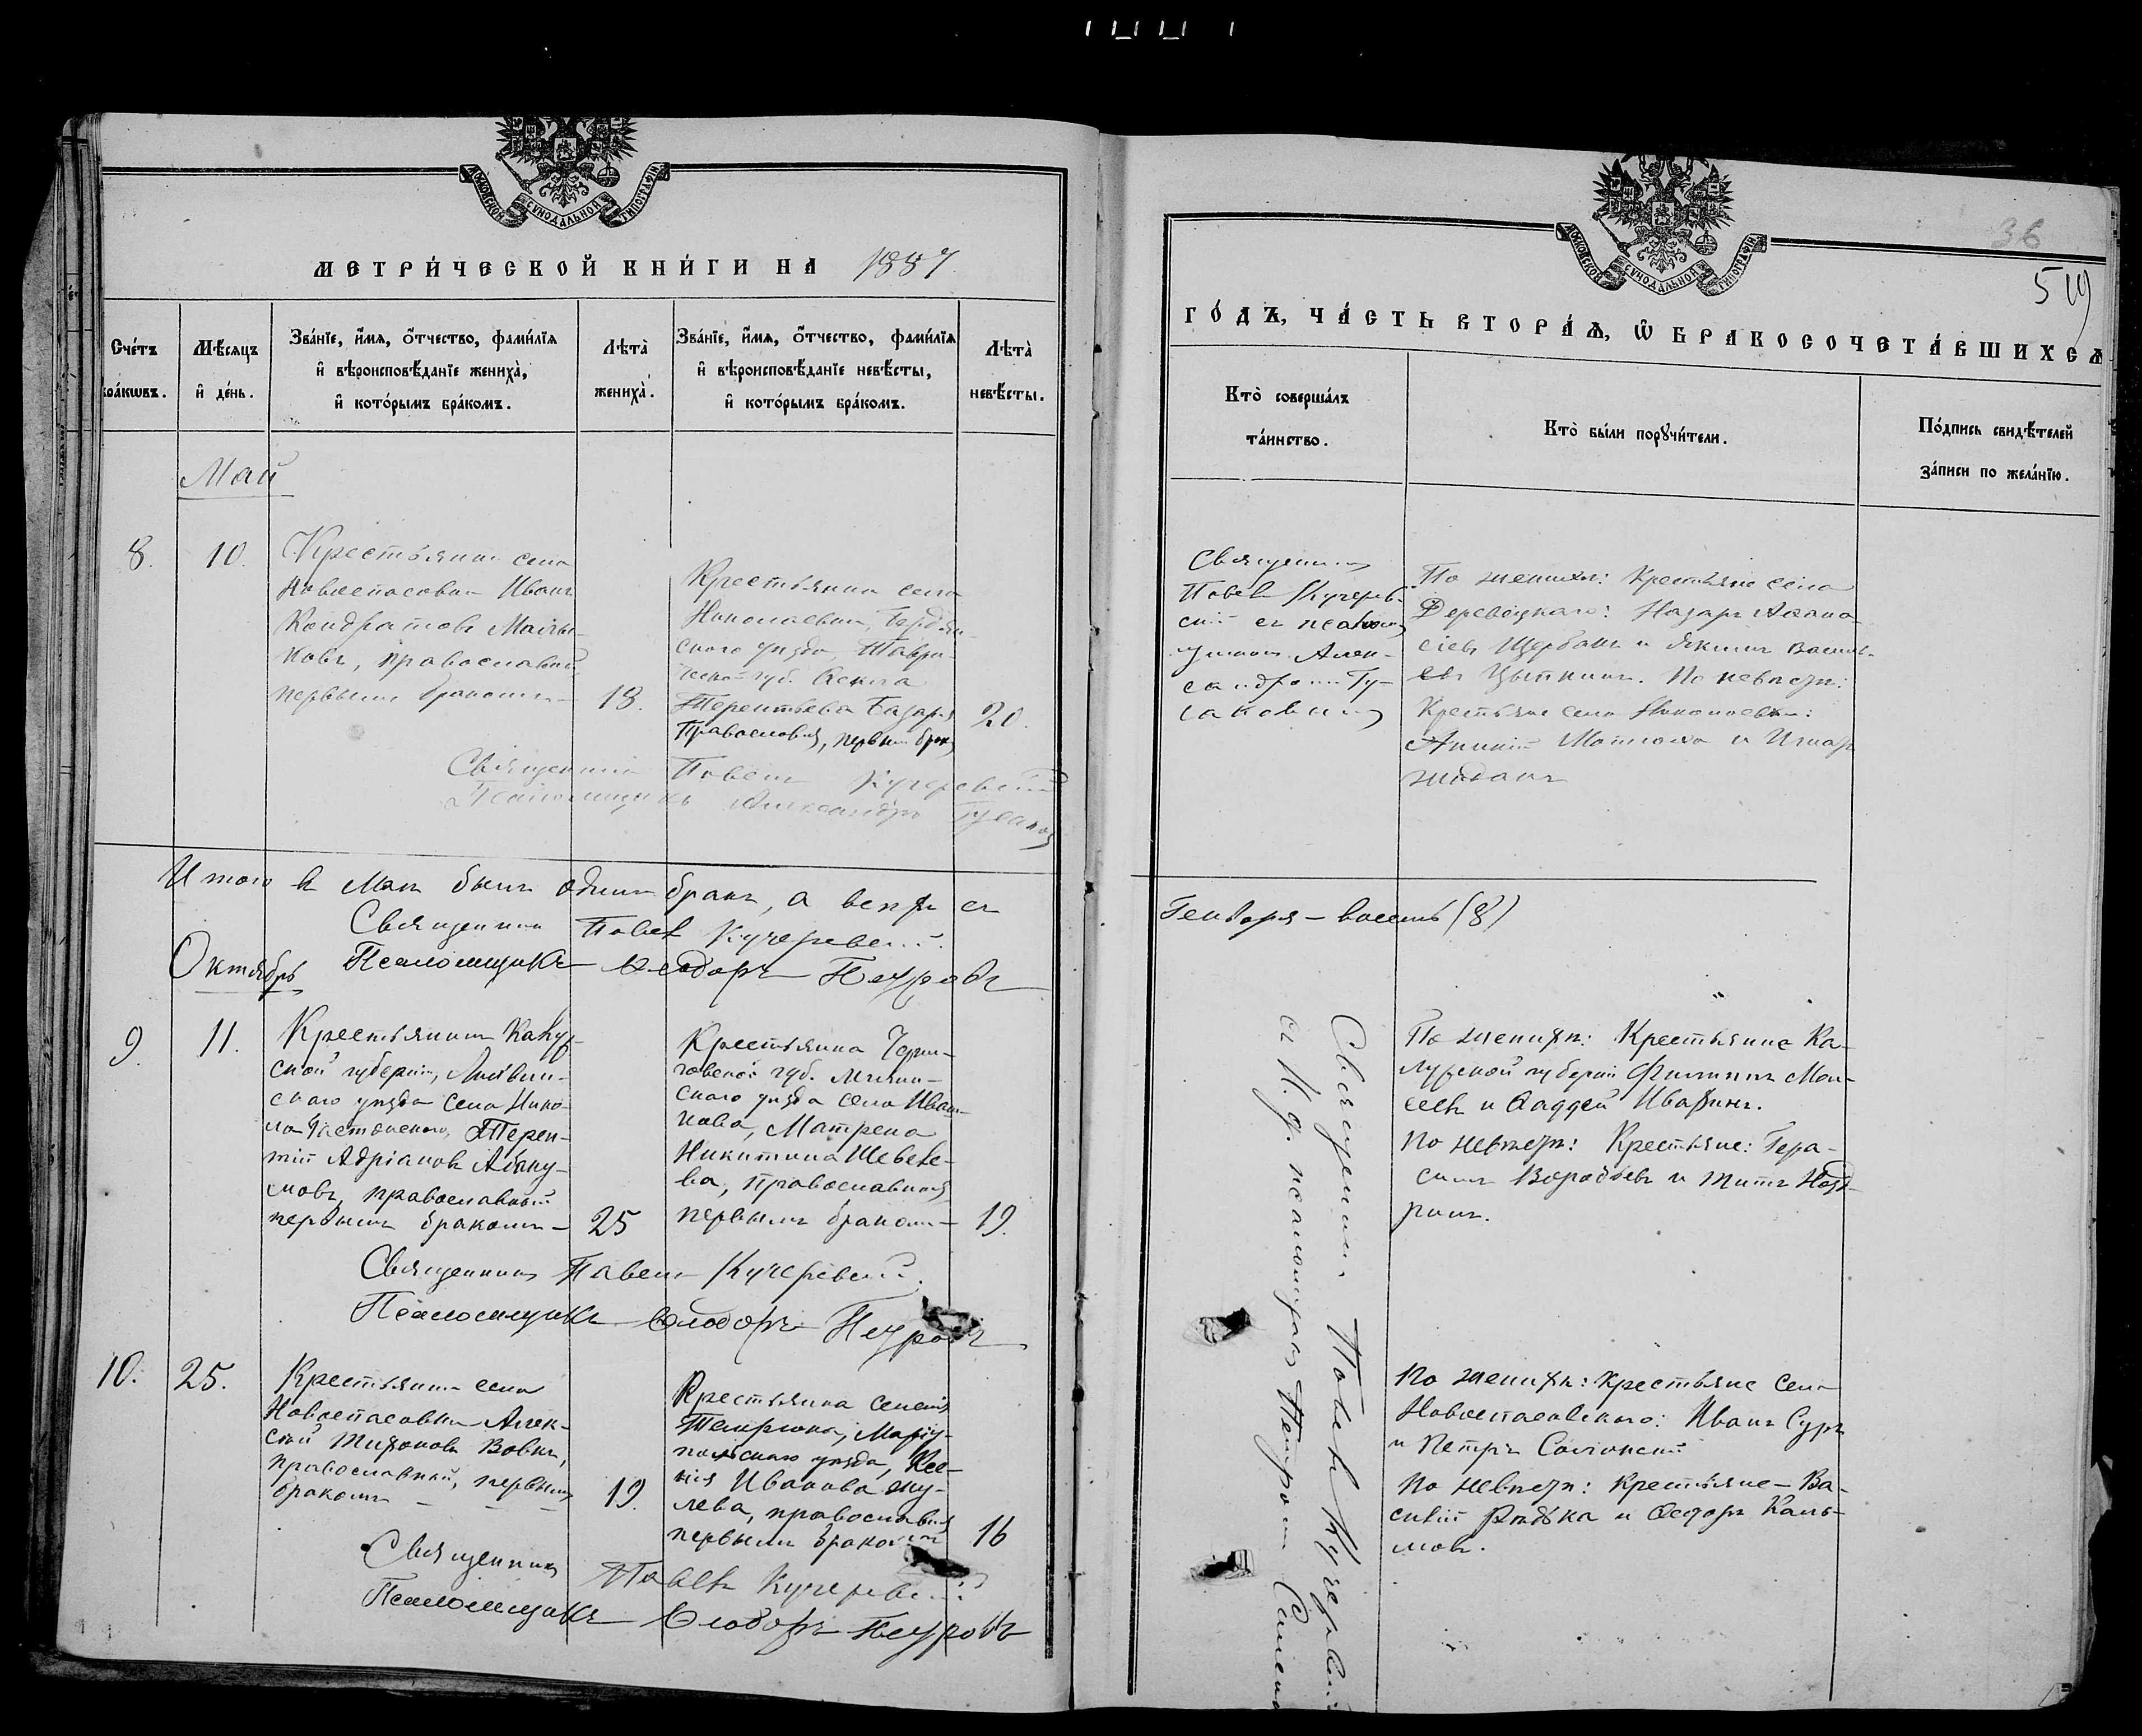 МОСКОВСКОЙ СѴНОДАЛЬНОЙ ТИПОГРАФІИ
МЕТРИ́ЧЕСКОЙ КНИ́ГИ НА 1887
Сче́тъ
бра́кωвъ.
Мѣ́сяцъ
и҆ де́нь.
Зва́нїе, и҆́мѧ, ѻ҆́тчество, фами́лїѧ
и҆ вѣроисповѣ́данїе жениха̀,
и҆ кото́рымъ бра́комъ.
Лѣта̀
жениха̀.
Зва́нїе, и҆́мѧ, ѻ҆́тчество, фами́лїѧ
и҆ вѣроисповѣ́данїе невѣ́сты,
и҆ кото́рымъ бра́комъ.
Лѣта̀
невѣ́сты.
Май
8.
10.
Крестьянинъ села
Новоспасовки Иванъ
Кондратовъ
ковъ, православный
первымъ бракомъ
18.
Крестьянка села
Николаевки, Бердян-
скаго уѣзда, Таври-
ческой губ.
Терентьева
Православная, первымъ бракомъ
20.
Священникъ Павелъ Кучеревскій
Псаломщикъ Александръ Гусаковъ
Итого въ Маѣ былъ одинъ бракъ, а всѣхъ съ
Священникъ Павелъ Кучеревскій.
Псаломщикъ Ѳеодоръ Петровъ
Октябрь
9.
11.
Крестьянинъ Калуж-
ской губерніи, Лихвин-
скаго уѣзда села Нико-
Терен-
тій Адріановъ Абаку-
мовъ, православный
первымъ бракомъ
25
Крестьянка Черни-
говской губ. Мглин-
скаго уѣзда села Ивай-
Матрена
Никитина Шевеле-
ва, православная
первымъ бракомъ
19.
Священникъ Павелъ Кучеревскій.
Псаломщикъ Ѳеодоръ Петровъ
10.
25.
Крестьянинъ села
Новоспасовки Алек-
сѣй Тихоновъ Вовкъ,
православный, первымъ
бракомъ
19.
Крестьянка селенія
Темрюка, Маріу-
польскаго уѣзда, Ксе-
нія Иванова Жу-
лева, православная
первымъ бракомъ
16
Священникъ Павелъ Кучеревскій
Псаломщикъ Ѳеодоръ Петровъ
МОСКОВСКОЙ СѴНОДАЛЬНОЙ ТИПОГРАФІИ
36
519
ГО́ДЪ, ЧА́СТЬ ВТОРА́Ѧ, Ѽ БРАКОСОЧЕТА́ВШИХСѦ
Кто̀ соверша́лъ
та́инство.
Кто̀ бы́ли порꙋчи́тели.
По́дпись свидѣ́телей
за́писи по жела́нїю.
Священникъ
Павелъ Кучерев-
скій съ псалом-
щикомъ Алек-
сандромъ Гу-
саковымъ
По женихѣ: Крестьяне села
Деревецкаго: Назаръ Аѳана-
сіевъ Щербакъ и Якимъ Василь-
евъ По невѣстѣ:
Крестьяне села Николаевки:
и
Генваря – восемь (8)
Священникъ Павелъ Кучеревскій
съ И. д. псаломщика Петромъ
По женихѣ: Крестьяне Ка-
лужской губерніи Филиппъ Мои-
сеевъ и Ѳаддей
По невѣстѣ: Крестьяне: Гера-
симъ Воробьевъ и Титъ Нозд-
ринъ.
По женихѣ: Крестьяне села
Новоспасовскаго: Иванъ Суръ
и Петръ
По невѣстѣ: Крестьяне – Ва-
силій Рѣдька и Ѳедоръ Каль-
мовъ.